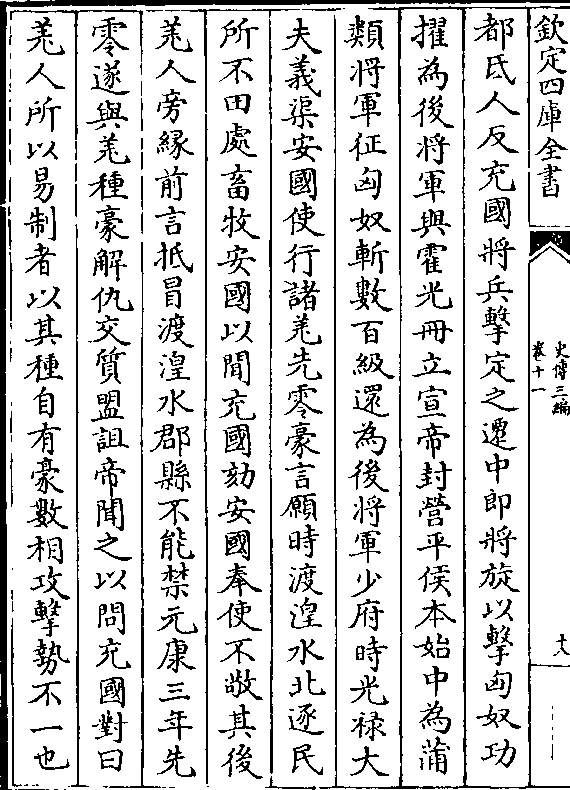 欽定四庫全書
史傳三編
卷十一
十八
都氐人反充國將兵擊定之遷中郎將旋以擊匈奴功
擢為後將軍與霍光冊立宣帝封營平侯本始中為蒲
類將軍征匈奴斬數百級還為後將軍少府時光祿大
夫義渠安國使行諸羌先零豪言願時渡湟水北逐民
所不田處畜牧安國以聞充國劾安國奉使不敬其後
羌人旁緣前言抵冒渡湟水郡縣不能禁元康三年先
零遂與羌種豪解仇交質盟詛帝聞之以問充國對曰
羌人所以易制者以其種自有豪數相攻擊勢不一也